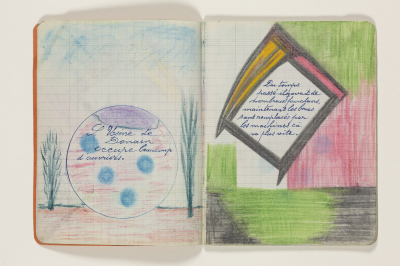 L'Usine Le
Bonain
occupe beaucoup
d'ouvriers.
Du temps
passé il y avait de
nombreux faucheurs,
maintenant les bras
sont remplacés par
les machines ça
va plus vite.